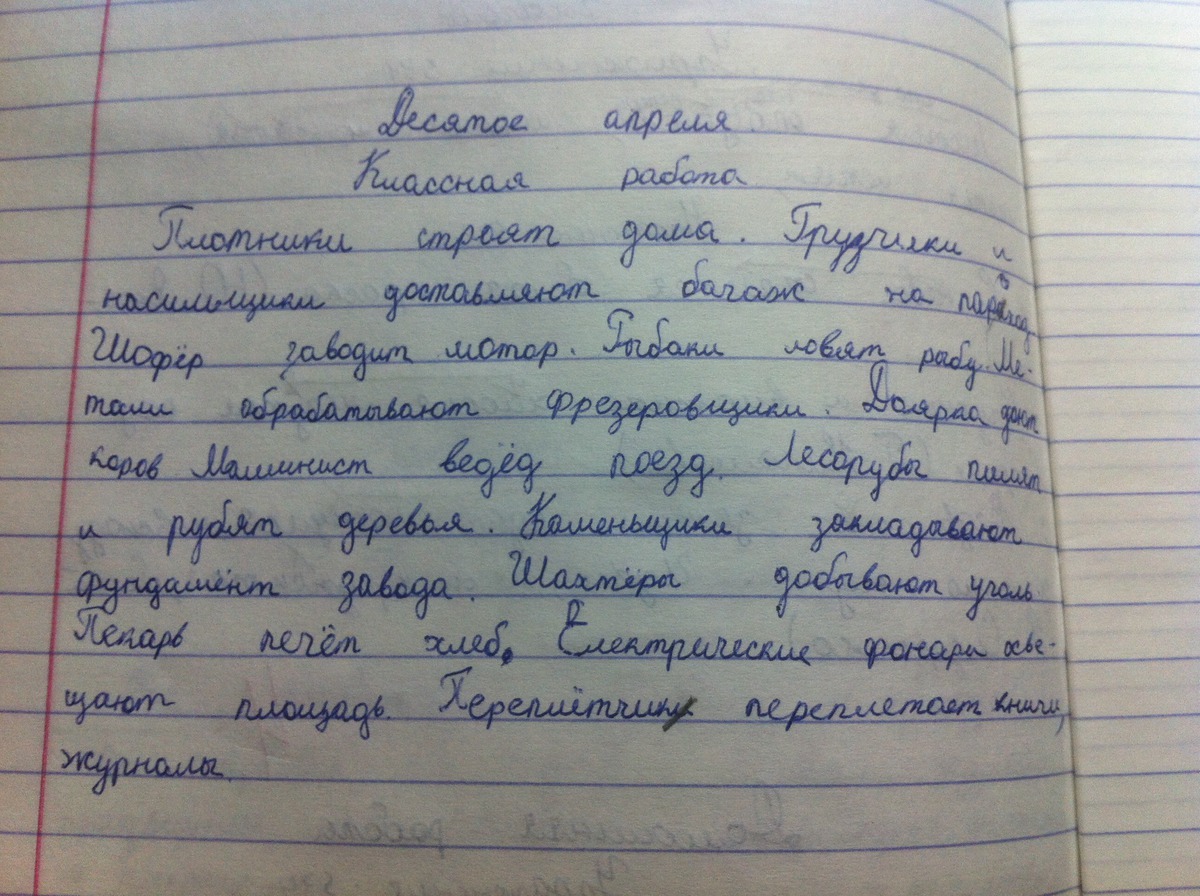 Десятое апреля
Классная работа
Плотники строят дома. Грузчики и
насильщики доставляют багаж на пароход.
Шофёр заводит мотор. Рыбаки ловят рыбу. Ме-
талл обрабатывают фрезеровщики. Доярка доют
коров Машинист ведёд поезд. Лесорубы пилят
и рубят деревья. Каменьщики закладывают
фундамент завода. Шахтёры добывают уголь.
Пекарь печёт хлеб. Електрические фонари осве-
щают площадь. Переплётчик переплетает книги,
журналы.